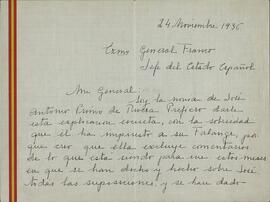 24 Noviembre 1936
Exmo General Franco
Jefe del Estado Español
Mi General:
Soy la novia de José
Antonio Primo de Rivera Prefiero darle
esta explicación escueta, con la sobriedad
que él ha impuesto a su Falange, por
que creo que ella excluye comentarios
de lo que esta siendo para mi estos meses
en que se han dicho y hecho sobre José
todas las suposiciones, y se han dado